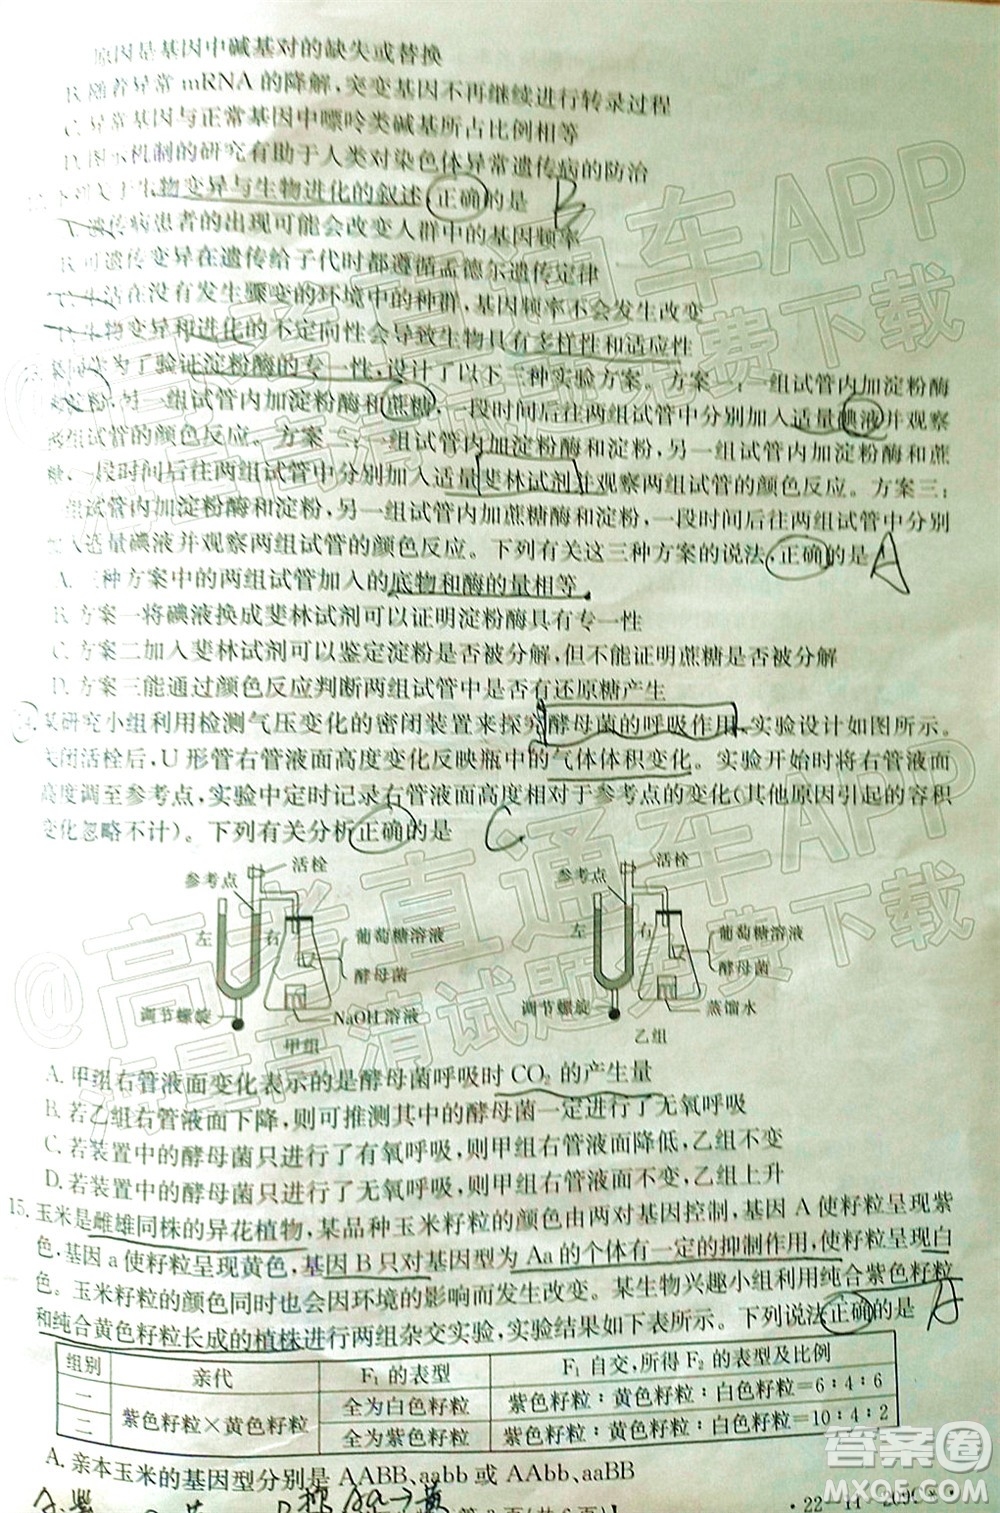 原因是基因中碱基对的缺失或替换
B.随着异常 mRNA 的降解，突变基因不再继续进行转录过程
C.异常基因与正常基因中嘌呤类碱基所占比例相等
D.图示机制的研究有助于人类对染色体异常遗传病的防治
下列关于生物变异与生物进化的叙述，正确的是 B
A.遗传病患者的出现可能会改变人群中的基因频率
B.可遗传变异在遗传给子代时都遵循孟德尔遗传定律
C.生活在没有发生骤变的环境中的种群，基因频率不会发生改变
D.生物变异和进化的不定向性会导致生物具有多样性和适应性
某同学为了验证淀粉酶的专一性，设计了以下三种实验方案。方案一：一组试管内加淀粉酶
淀粉，另一组试管内加淀粉酶和蔗糖，一段时间后往两组试管中分别加入适量碘液并观察
两组试管的颜色反应。方案二：一组试管内加淀粉酶和淀粉，另一组试管内加淀粉酶和蔗
糖，一段时间后往两组试管中分别加入适量斐林试剂并观察两组试管的颜色反应。方案三：
一组试管内加淀粉酶和淀粉，另一组试管内加蔗糖酶和淀粉，一段时间后往两组试管中分别
加入适量碘液并观察两组试管的颜色反应。下列有关这三种方案的说法，正确的是 A
A.三种方案中的两组试管加入的底物和酶的量相等
B.方案一将碘液换成斐林试剂可以证明淀粉酶具有专一性
C.方案二加入斐林试剂可以鉴定淀粉是否被分解，但不能证明蔗糖是否被分解
D.方案三能通过颜色反应判断两组试管中是否有还原糖产生
14.某研究小组利用检测气压变化的密闭装置来探究酵母菌的呼吸作用，实验设计如图所示。
关闭活栓后，U 形管右管液面高度变化反映瓶中的气体体积变化。实验开始时将右管液面
高度调至参考点，实验中定时记录右管液面高度相对于参考点的变化（其他原因引起的容积
变化忽略不计）。下列有关分析正确的是 C
活栓 活栓
参考点 参考点
左 右 葡萄糖溶液 左 右 葡萄糖溶液
酵母菌 酵母菌
调节螺旋 NaOH 溶液 调节螺旋 蒸馏水
甲组 乙组
A.甲组右管液面变化表示的是酵母菌呼吸时 CO₂ 的产生量
B.若乙组右管液面下降，则可推测其中的酵母菌一定进行了无氧呼吸
C.若装置中的酵母菌只进行了有氧呼吸，则甲组右管液面降低，乙组不变
D.若装置中的酵母菌只进行了无氧呼吸，则甲组右管液面不变，乙组上升
15.玉米是雌雄同株的异花植物，某品种玉米籽粒的颜色由两对基因控制，基因 A 使籽粒呈现紫
色，基因 a 使籽粒呈现黄色，基因 B 只对基因型为 Aa 的个体有一定的抑制作用，使籽粒呈现白
色。玉米籽粒的颜色同时也会因环境的影响而发生改变。某生物兴趣小组利用纯合紫色籽粒
和纯合黄色籽粒长成的植株进行两组杂交实验，实验结果如下表所示。下列说法正确的是 A
组别 亲代 F₁ 的表型 F₁ 自交，所得 F₂ 的表型及比例
一 紫色籽粒×黄色籽粒 全为白色籽粒 紫色籽粒：黄色籽粒：白色籽粒=6：4：6
二 全为紫色籽粒 紫色籽粒：黄色籽粒：白色籽粒=10：4：2
A.亲本玉米的基因型分别是 AABB、aabb 或 AAbb、aaBB
·22－11－209C
@高考直通车APP
海量高清试题免费下载
@高考直通车APP
海量高清试题免费下载
答案圈
MXQE.COM